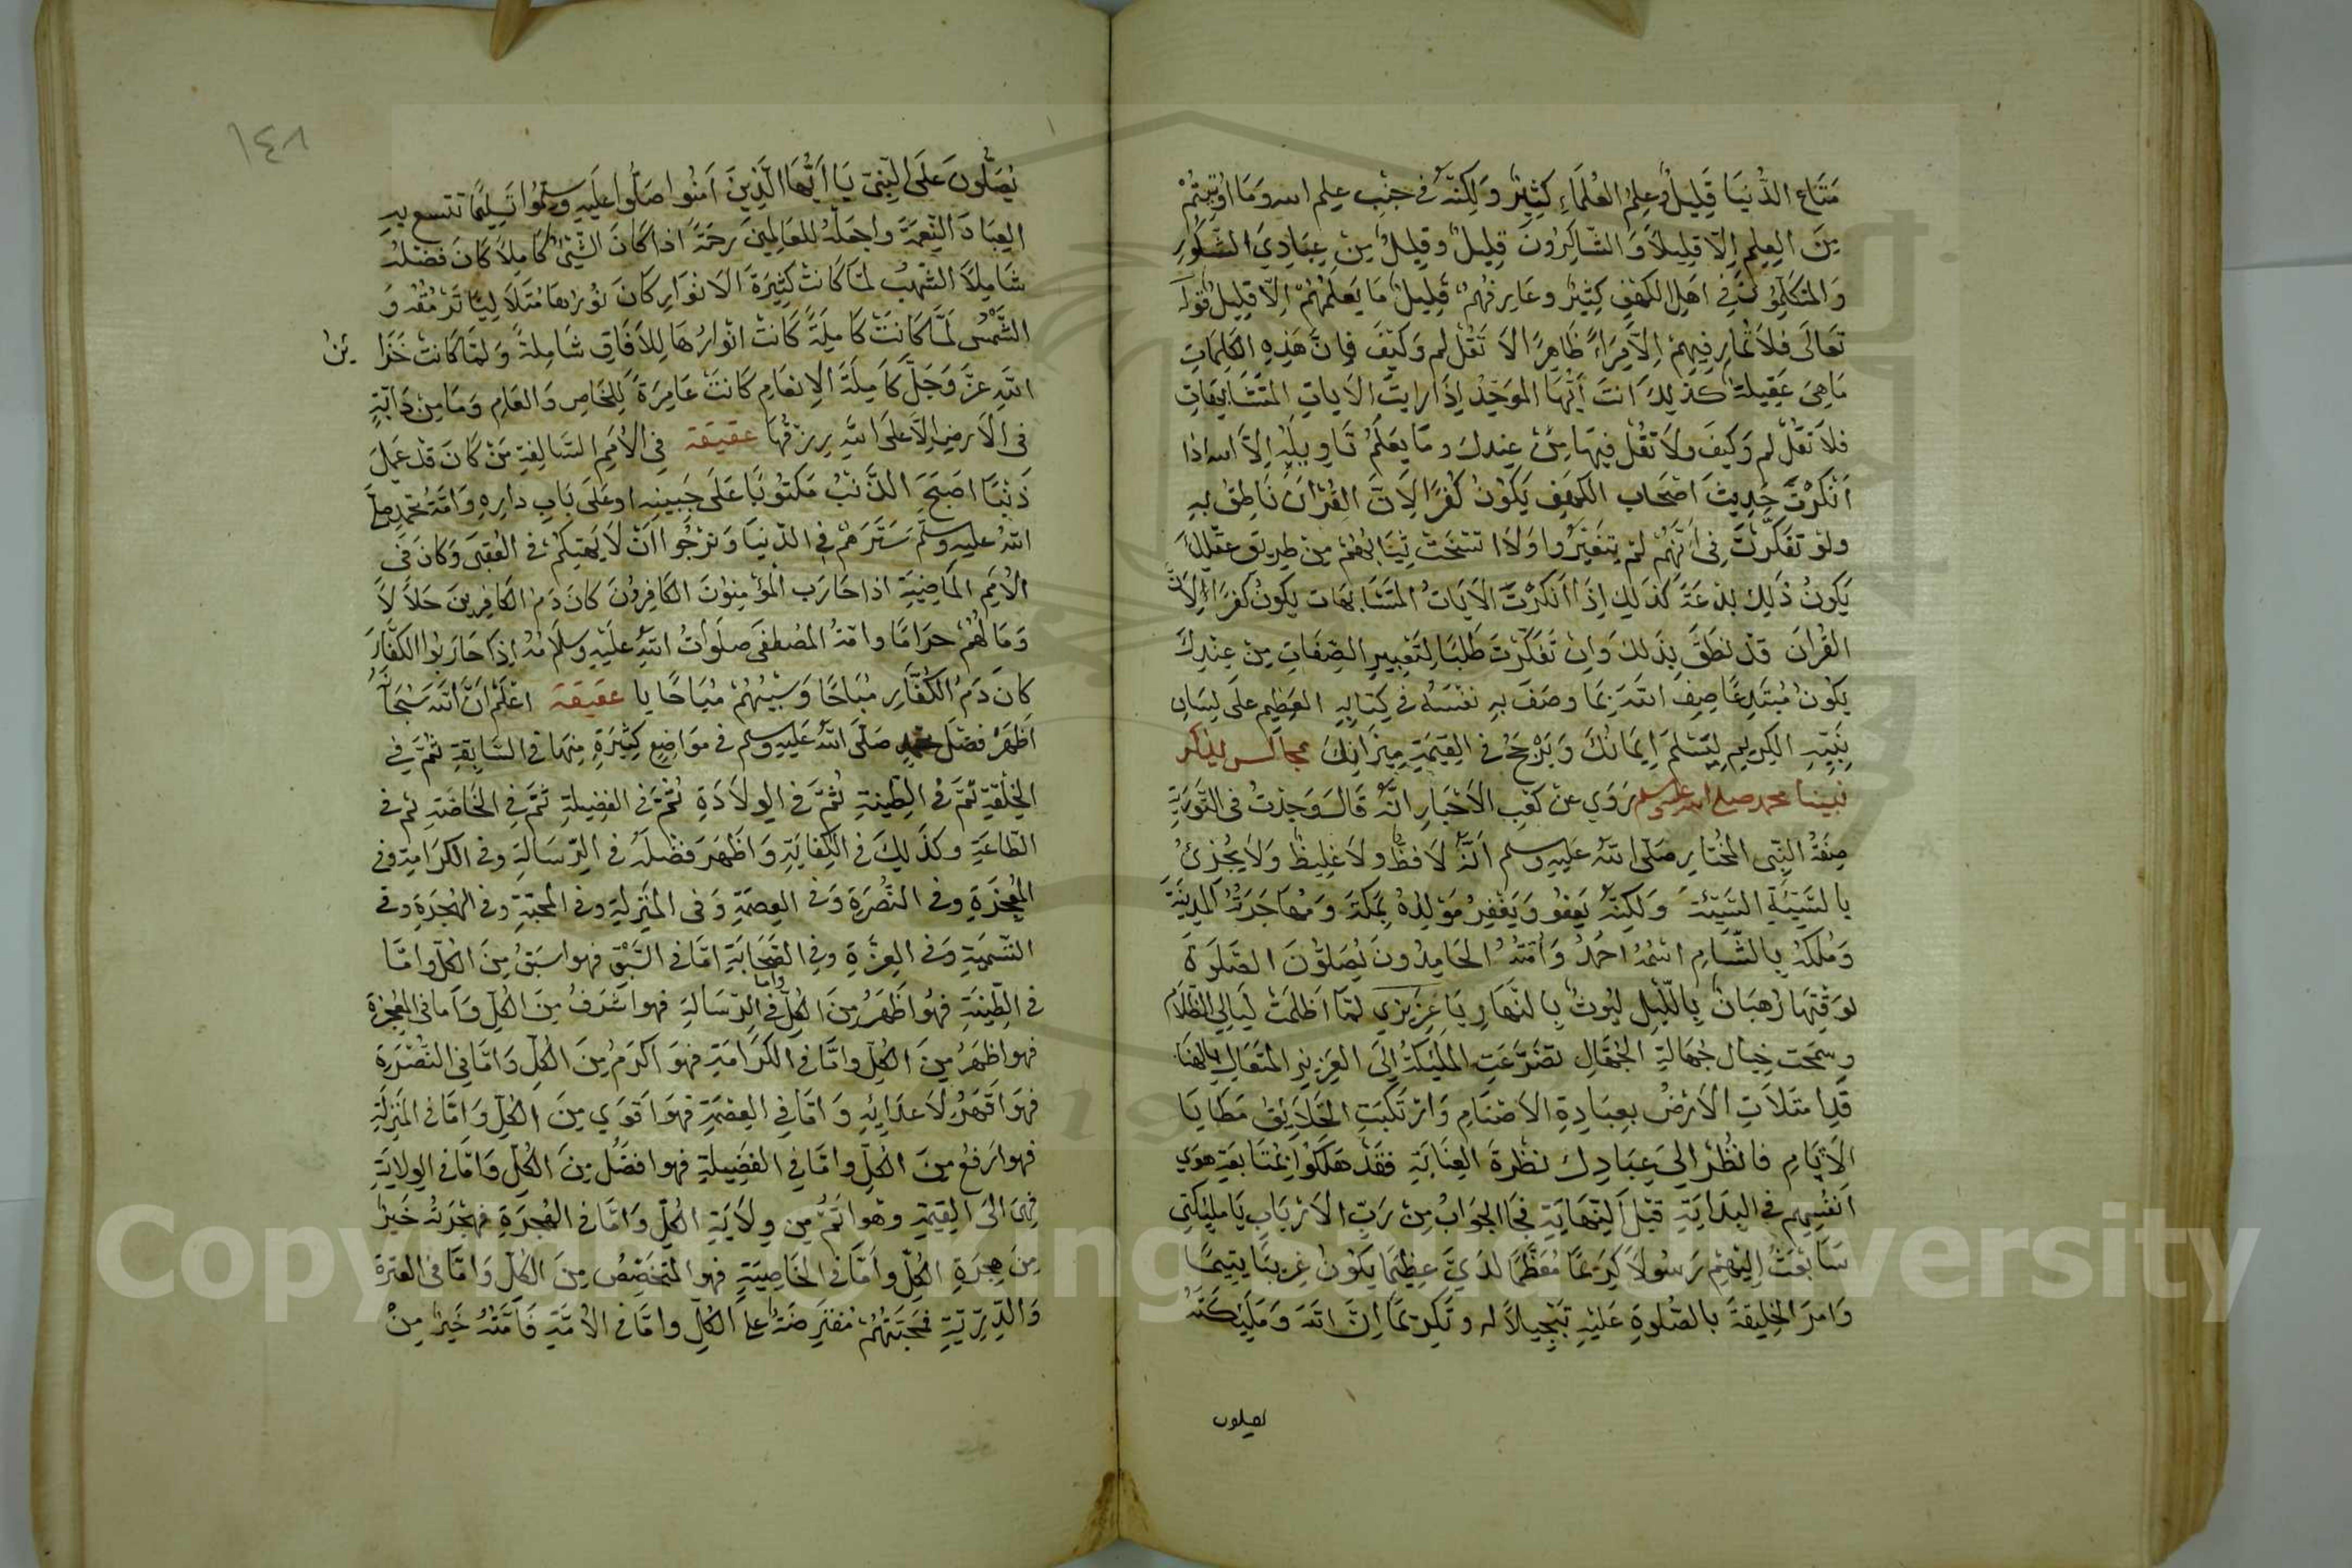 مَتَاعِ الدُّنيَا قَلِيلٌ وعِلمُ العُلمَاءِ كَثِيرٌ وَلكِنَّهُ في جَنْبِ علم الله وَمَا اُوتِيتُمْ
مِنَ العِلمِ اِلّا قَلِيلاً وَالشّاكِرُونَ قَلِيلٌ وقَلِيلٌ مِنْ عِبَادِيَ الشَّكُورِ
وَالمتَكَلِّمُونَ فِي اهَلِ الكهْفِ كثِيرٌ وعَارِفُهُمْ قَلِيلٌ مَا يَعلَمُهُمْ اِلّا قَلِيلٌ قوله
تعَالَى فَلاَ تُمارِ فيهِمْ اِلاَّ مِرَاءً ظَاهِرًا لاَ تَقُلْ لم وَكيْفَ فَاِنَّ هَذِهِ الكَلِمَاتِ
مَا هِيَ عَقِيلَةٌ كذلِكَ انتَ اَيُّهَا الموَحِّدُ اِذَا رايتَ الاَياتِ المتَشَابِهَاتِ
فلاَ تقُلْ لم وَكيفَ ولاَ تَقُلْ فيهَا مِنْ عِندِكَ ومَا يَعلَمُ تَاوِيلَهُ اِلاَّ الله اذا
اَنْكَرْتَ حَدِيثَ اصْحَاب الكهفِ يَكوُنُ كُفْرًا لِاَنَّ القُرْانَ نَاطِقٌ بهِ
ولوْ تفكَّرْتَ فِي اَنَّهُمْ لَمْ يتغَيَّرُوا وَلاَ اتسَخَتْ ثِيَابُهُمْ مِنْ طريق عَقْلِكَ
يَكونُ ذَلِكَ بدْعَةً كذَلِكَ اِذَا اَنكَرْتَ الاَيَاتُ المتَشَابهَات يكونُ كفرًا لِاَنَّ
القُرْانَ قدْ نطَقَ بِذَلكَ وَاِنْ تَفَكّرْتَ طَلَبًا لِتَغيِيرِ الصِّفَاتِ مِنْ عِنْدِكَ
يكُونُ مُبْتَدِعًا صِفِ اللهَ بِمَا وصَفَ بهِ نفْسَهُ في كِتابِهِ العَظِيمِ عَلَى لِسَانِ
نَبِيِّهِ الكَرِيمِ لِيَسْلَمَ اِيمَانُكَ وَيَرْجَحُ في القِيمَةِ مِيزَانِكَ مجالس لذكر
نبينا محمد صلى الله عليه وسلم رَوَي عَنْ كَعْبِ الاَحْبَارِ انَّهُ قَالَ وَجَدْتُ فى التَّوْرَيةِ
صِفَةُ النَّبِي المخْتَارِ صَلّى اللهُ عَلَيهِ وسلم اَنَّهُ لاَ فَظٌّ ولاَ غَلِيظٌ وَلاَ يُجْزِئُ
بالسَّيِّئَةِ السَّيِّئةَ وَلكِنَّهُ يَعفُو وَيَغْفِرُ مَوْلِدُهُ بمَكةَ وَمُهَاجَرَتُهُ المدِينَةَ
وَمُلكهُ بِالشَّامِ اسْمُهُ احْمَدُ وَاُمَّتُهُ الحَامِدُونَ يُصَلّوُنَ الصَّلَوةَ
لوَقْتِهَا رُهبَانٌ بِاللَّيلِ ليُوثٌ بِالنّهَارِ يَا عَزِيزِي لمَّا اَظْلَمَتْ لَيالِي الظّلاَم
وسَمجَت خِبال جُهَالَةِ الجُهَّالِ تضَرَّعَتِ الملَئِكَةُ اِلَى العَزِيزِ المتَعَالِ الهنَا
قَدِ امتَلاَتِ الاَرْضُ بعِبَادةِ الاَصْنَامِ وَارْتَكبَتِ الخَلاَيِقُ مَطَايَا
الاَثَامِ فانْظُرْ اِليَ عِبَادِكَ نظْرَةَ العِنَايَةِ فقَدْ هَلَكُوا بِمُتَابَعَةِ هوَي
انفُسِهِم في البِدَايَةِ قبْلَ النِّهَايَةِ فجَا الجَوَابُ مِنْ رَبِّ الاَرْبَابِ يَا مَلئِكتِي
سَاَبْعَثُ اِلَيْهِمْ رَسُولاً كَرِيمًا مُعَظَّمًا لدَيَّ عظِيمًا يَكونُ غرِيبًا يتِيمًا
وَامرَ الخلِيقةَ بالصَّلوةِ عَلَيْهِ تبْجِيلاً له وتَكرِيمًا اِنَّ اللهَ وَمَلَئِكَتَهُ
يصلون
١٤٨
يُصَلُّونَ عَلَى النَّبِيِّ يَا اَيُّهَا الَّذِينَ اَمنُوا صَلُّوا عَلَيهِ وسَلِّمُوا تَسلِيمًا تتسع بهِ
العِبَادَ النِّعمَةَ واجعَلْهُ للعَالمِينَ رحمَةً اذا كَانَ الشَّيْئُ كَامِلاً كَانَ فضْلُهُ
شامِلاً الشّهُبُ لمّا كَانتْ كثِيرَةَ الاَنوَارِ كانَ نُورُهَا مُتَلاَلِيًا تَرْمُقُهُ وَ
الشَّمْسُ لَمَّا كَانَتْ كَامِلَةً كَانتْ انْوَارُهَا لِلاَفَاقِ شَامِلةً وَلمَّا كَانتْ خَزَا ئنُ
اللهِ عزَّ وَجَلَّ كَامِلَةَ الاِنعَامِ كَانتْ عَامِرَةً لِلخَاصِ وَالعَامِ وَمَا مِنْ دَابّةٍ
فى الاَرضِ اِلاَّ عَلَى اللهِ رِزقُهَا عقيقة فِي الاُمَمِ السَّالِفةِ مَنْ كَانَ قَدْ عَمِلَ
ذَنْبًا اصْبَحَ الذَّنْبُ مَكتُوبًا عَلَى جَبينِهِ او عَلَى بَابِ دارِهِ وَامَّةُ مُحمدٍ صلّى
اللهُ عَليهِ وسَلَّم سَتَرَهُمْ في الدُّنيَا وَنرْجُوا اَنْ لاَ يَهتِكهُمْ في العُقبَى وَكانَ فى
الاُمَمِ الماضِيَةِ اذا حَارَبَ المؤْمِنوُنَ الكافِرُونَ كانَ دَمُ الكَافِرِينَ حَلاَلاً
وَمَا لَهُمْ حرَامًا وامّةُ المُصْطفَى صلَوَاتُ اللهِ عَلَيْهِ وسلاَمُهُ اِذَا حَارَبُوا الكفَّارَ
كانَ دَمُ الكُفّارِ مبَاحًا وَسَبْيُهُمْ مبَاحًا يا عقيقة اعْلَمْ اَنَّ اللهَ سُبْحَانَهُ
اَظهَرَ فضْلَ محمدٍ صَلَّى اللهُ عَلَيهِ وسلم في موَاضِعٍ كثِيرَةٍ مِنهَا في السَّابِقةِ ثُمَّ في
الخلْقةِ ثمَّ في الطِّينةِ ثُمَّ في الوِلاَدَةِ ثُمَّ في الفضِيلةِ ثمَّ في الخَاصّةِ ثم في
الطّاعَةِ وكذَلِكَ في الكِفَايَةِ وَاظْهَرَ فضْلَهُ في الرِّسَالةِ وفي الكرَامَةِ وفي
المُعْجِزَةِ وفي النّصْرَةِ وَفي العِصمَةِ وَفى المَنْزِلَةِ وفي المحَبّةِ وفي الهِجْرَةِ وفي
التَّسْمِيَةِ وَفي العِزَّةِ وفي الصَّحَابَةِ امّا في السَّبْقِ فهوَ اسبَقُ مِنَ الكلِّ وامَّا
في الطِّينَةِ فهُو اظهَرُ مِنَ الكلِّ وأما في الرِّسَالةِ فهوَ اشْرَفُ مِنَ الكلِّ وَاَما في المُعجِزةِ
فهو اظهَرُ مِنَ الكلِّ وامَّا في الكَرَامَةِ فهوَ اَكرَمُ مِنَ الكلِّ وَامَّا في النُّصْرَةِ
فهوَ اقْهَرُ لاَعدَائِهِ وَامّا في العِصْمَةِ فهوَ اقوَي مِنَ الكلِّ وَامَّا في المَنزِلَةِ
فهوَ ارْفعُ مِنَ الكلِّ وامَّا في الفضِيلةِ فهوَ افضَلُ مِنَ الكلِّ وَامَّا في الوِلايَةِ
فهىَ الىَ القِيمَةِ وهوَ اتَمُّ مِن وِلاَيَةِ الكلِّ وَامّا في الهِجرَةِ فهِجْرَتُهُ خَيرٌ
مِنَ هِجرَةِ الكلِّ وامَّا في الخاصِيَةِ فهو المتخَصِّصُ مِنَ الكلِّ وَامَّا في العترة
وَالذُّرِّيّةِ فمَحَبَّتهُمْ مُفتَرضَةٌ عَلَى الكلِّ وامَّا في الاُمّةِ فاُمَّتُهُ خَيرٌ مِنْ